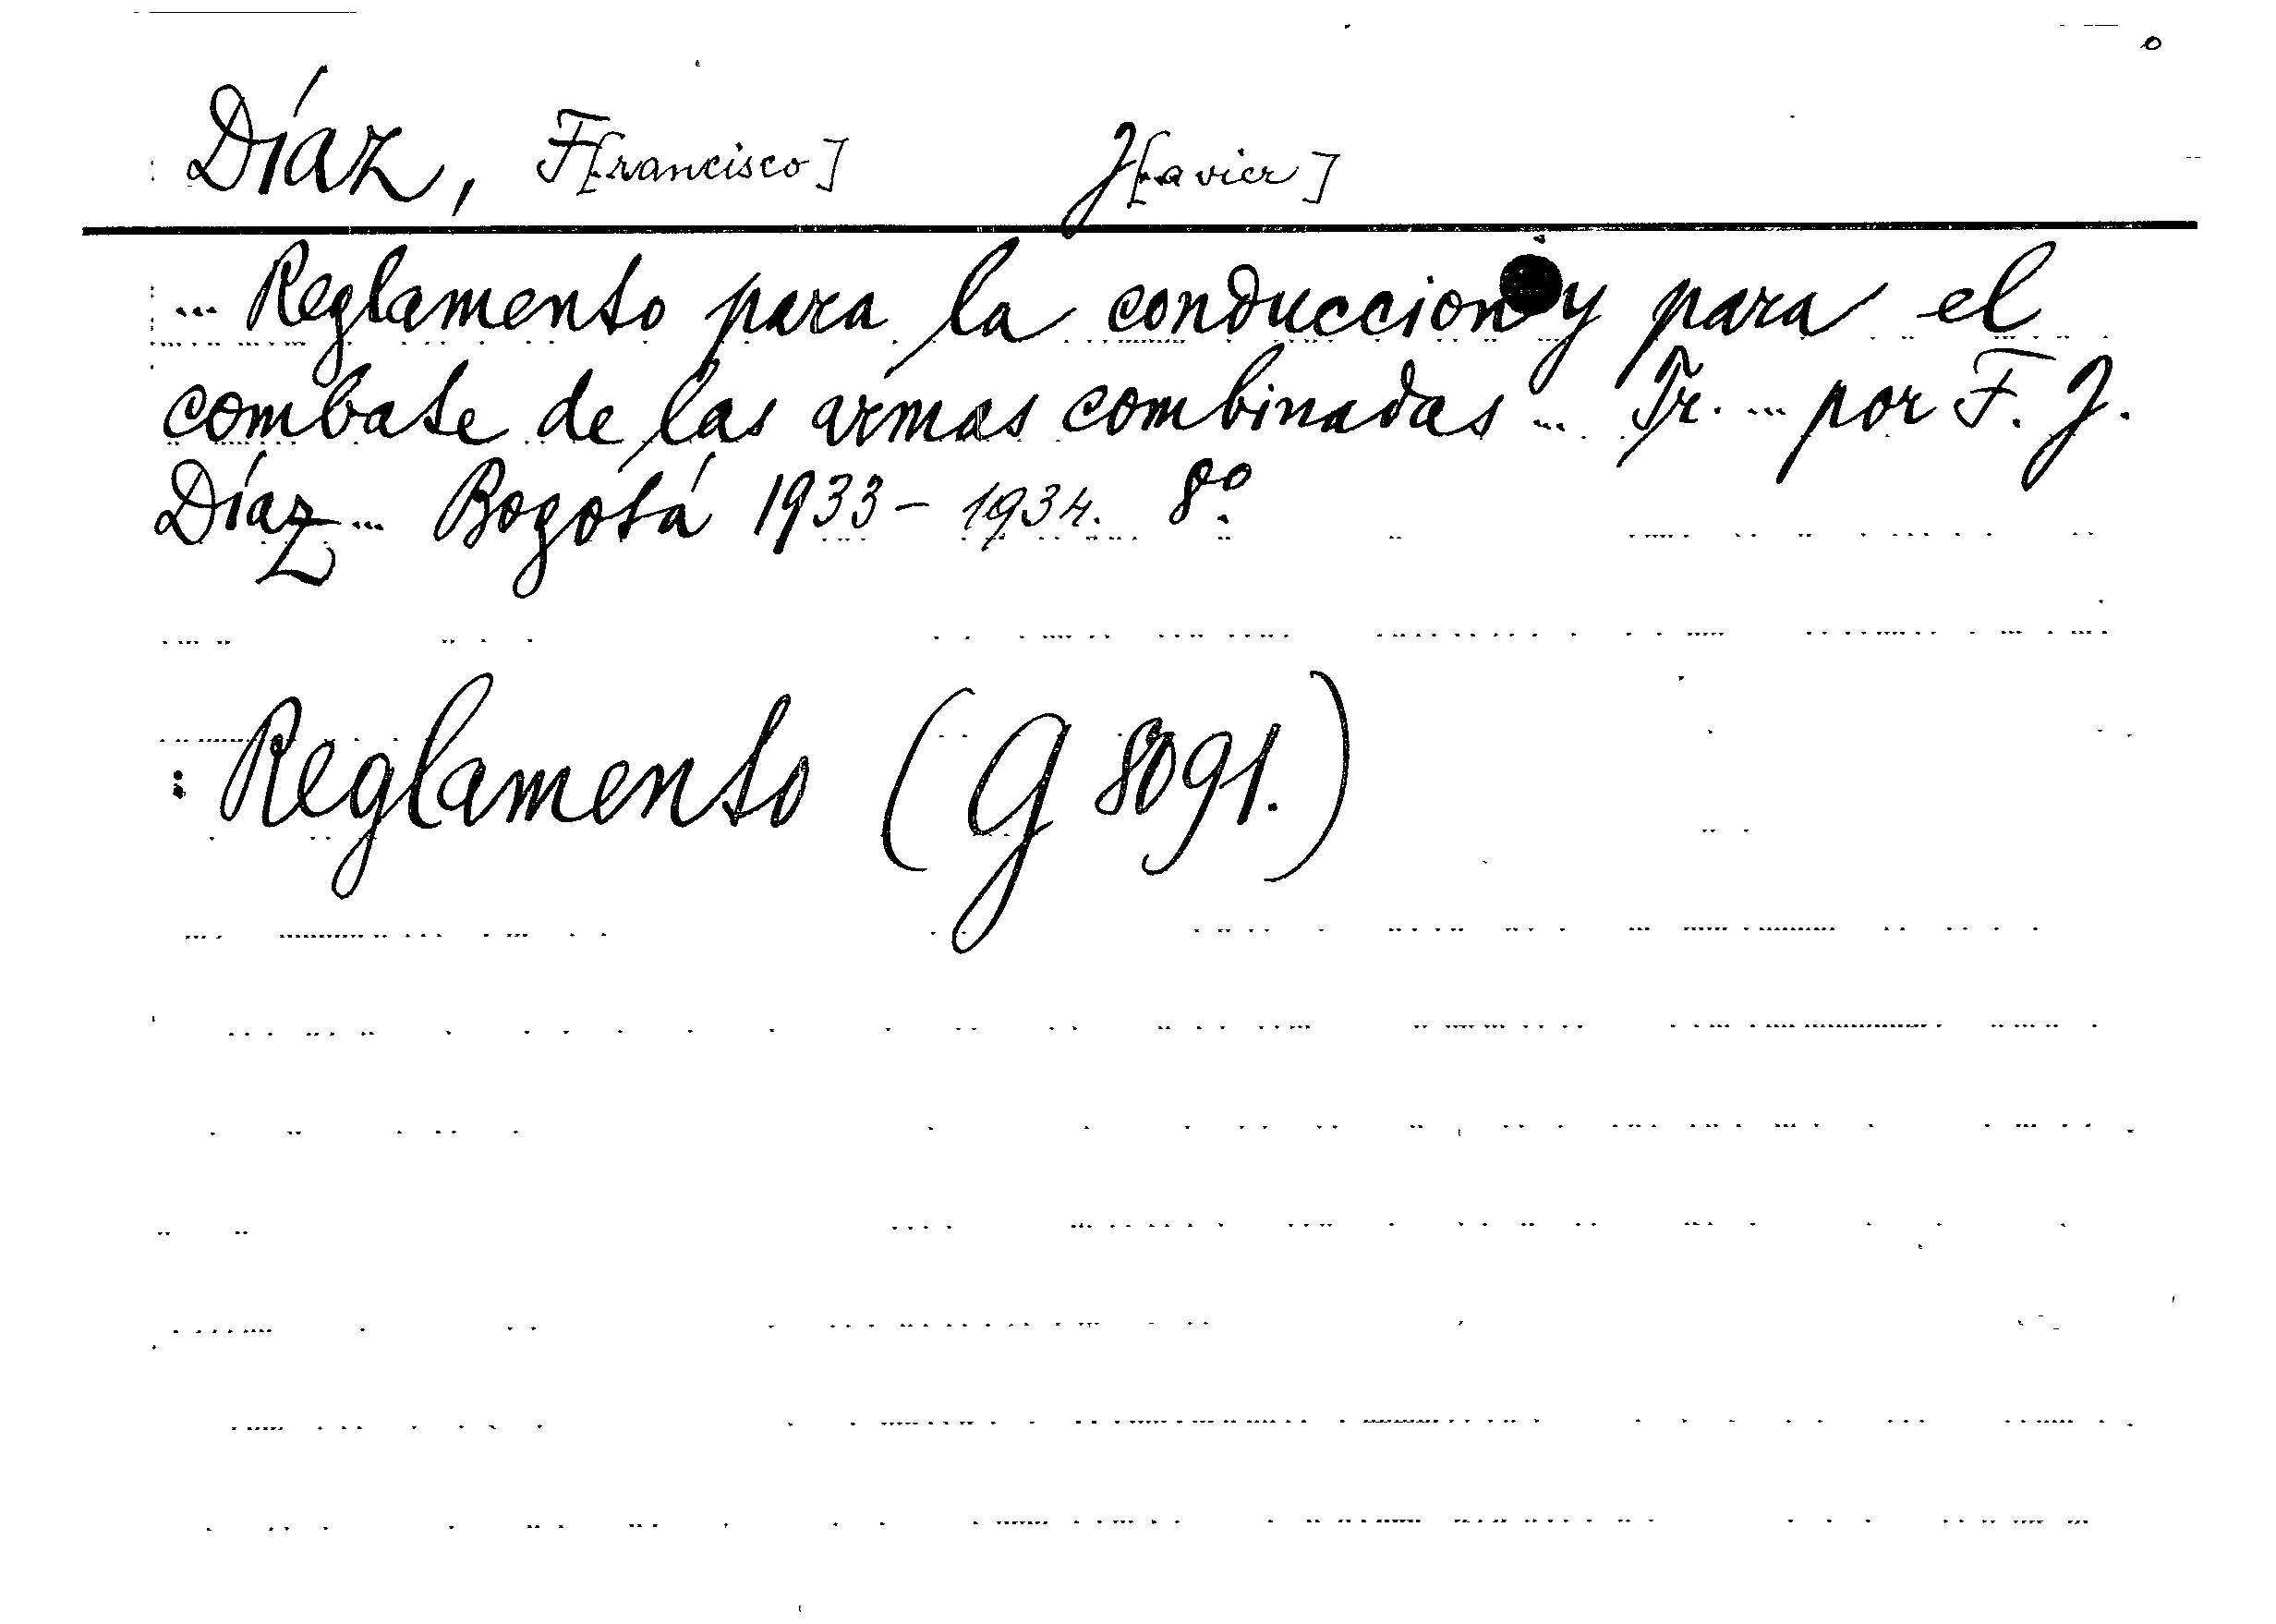 Díaz, F[rancisco] J[avier]
... Reglamento para la conduccion y para el
combate de las armas combinadas ... Tr. ... por F. J.
Díaz ... Bogotá 1933-1934. 8º.
: Reglamento (G 8091.)